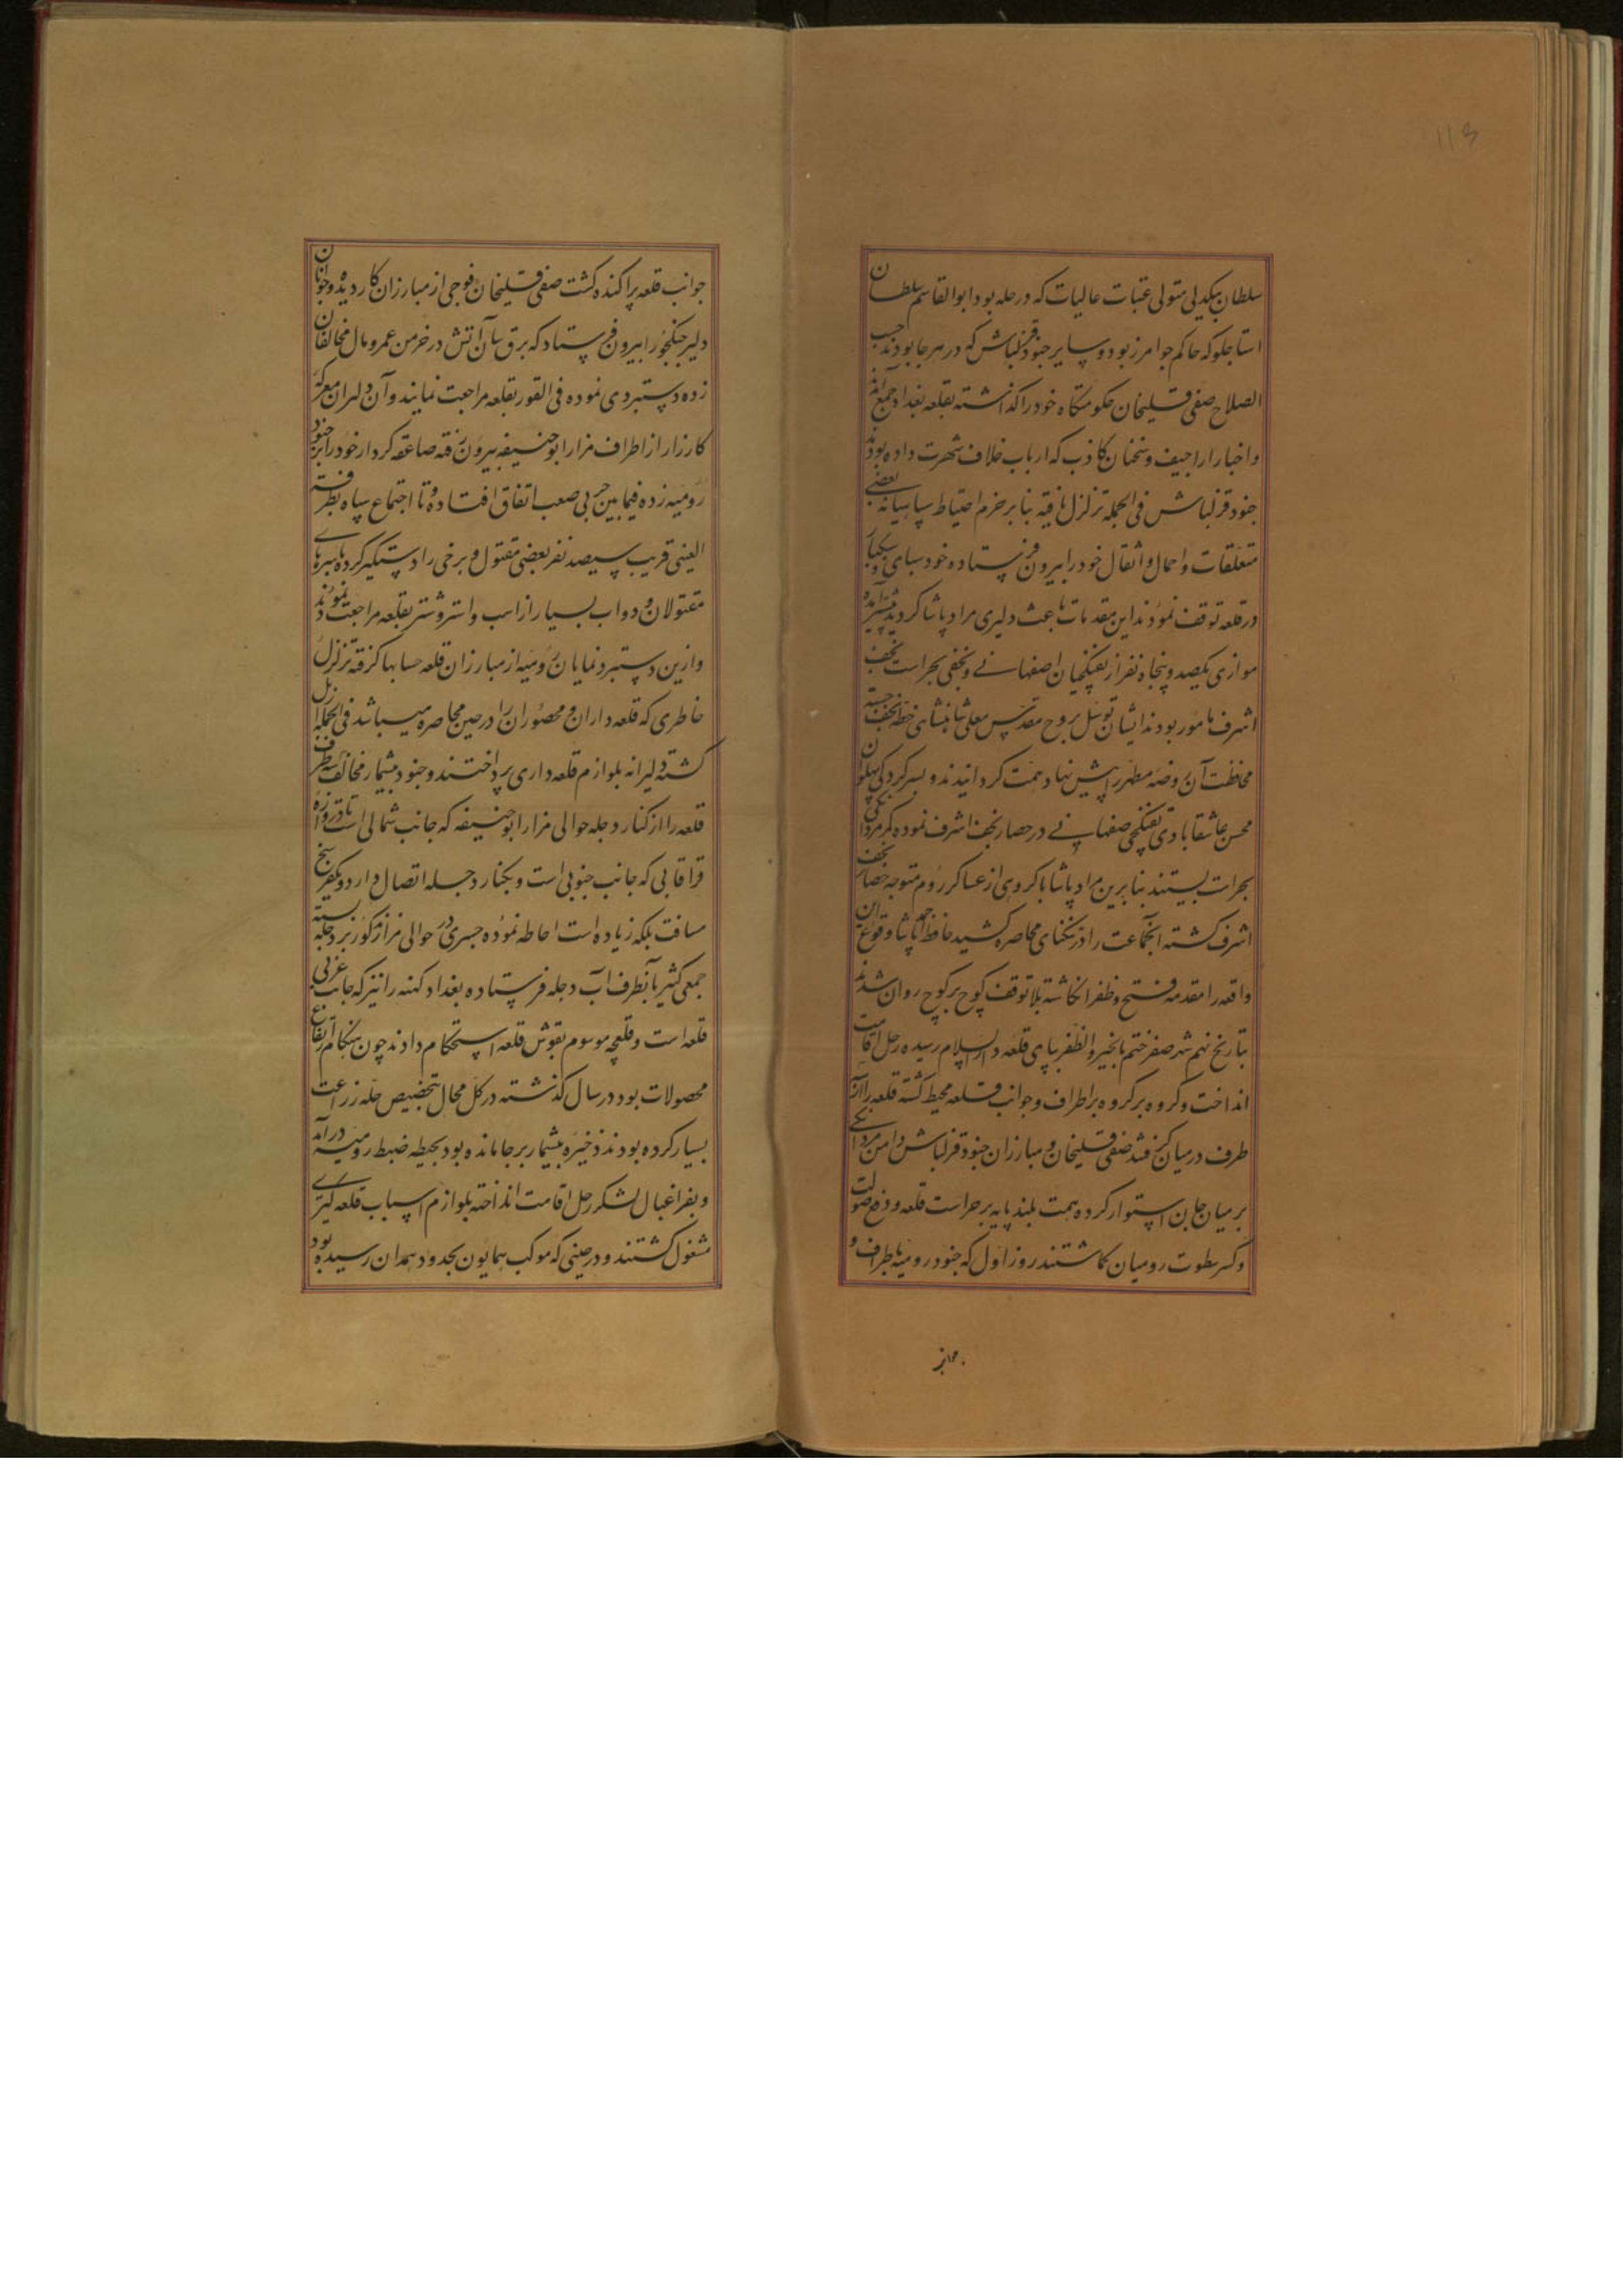 ۱۱۳
سلطان بیکدلی متولی عتبات عالیات که در حله بود و ابوالقاسم سلطان
استاجلو که حاکم جوامرز بود و سایر جنود قزلباش که در هر جا بودند حسب
الصلاح صفی قلیخان حکومتگاه خود را گذاشته بقلعه بغداد جمع آمدند
و اخبار اراجیف و سخنان کاذب که ارباب خلاف شهرت داده بودند
جنود قزلباش فی الجمله تزلزل یافته بنابر خرم احتیاط سپاهیانه بعضی
متعلقات و احمال و اثقال خود را بیرون فرستاده خود سبای و سکبار
در قلعه توقف نمودند این مقدمات باعث دلیری مراد پاشا گردید
موازی یکصد و پنجاه نفر از تفنگچیان اصفهانی و نجفی بحراست نجف
اشرف مامور بودند ایشان توسل بروح مقدس معلی شاهنشاه خطه نجف جسته
محافظت آن روضه مطهر را پیش نهاد همت گردانیدند و بسرکردگی پهلوان
محسن عاشقابادی تفنگچی صفهانی در حصار نجف اشرف نموده کمر مردانگی
بحراست بستند بنابرین مراد پاشا با گروهی از عساکر روم متوجه حصار نجف
اشرف گشته آنجماعت را در تنکنای محاصره کشید حافظ احمد پاشا وقوع این
واقعه را مقدمه فتح و ظفر انگاشته بلا توقف کوچ بر کوچ روان شدند
بتاریخ نهم شهر صفر ختم بالخیر و الظفر بپای قلعه دار السلام رسیده رحل اقامت
انداخت و گروه بر گروه بر اطراف و جوانب قلعه محیط گشته قلعه را از
طرف در میان گرفتند صفی قلیخان و مبارزان جنود قزلباش دامن مردانگی
بر میان جان استوار کرده همت بلند پایه بر حراست قلعه و دفع صولت
و کسر سطوت رومیان گماشتند روز اول که جنود رومیه باطراف و
جوانب
جوانب قلعه پراکنده گشت صفی قلیخان فوجی از مبارزان کاردیده و جوانان
دلیر جنکجو را بیرون فرستاد که برق سان آتش در خرمن عمر و مال مخالفان
زده دستبردی نموده فی الفور بقلعه مراجعت نمایند و آن دلیران معرکه
کارزار از اطراف مزار ابوحنیفه بیرون رفته صاعقه کردار خود را بر جنود
رومیه زده فیمابین حربی صعب اتفاق افتاده و تا اجتماع سپاه بطرفه
العینی قریب سیصد نفر بعضی مقتول و برخی را دستگیر کرده با سرهای
مقتولان و دواب بسیار از اسب و استر و شتر بقلعه مراجعت نمودند
و ازین دستبرد نمایان رومیه از مبارزان قلعه حسابها گرفته تزلزل
خاطری که قلعه داران و محصوران را در حین محاصره میباشد فی الجمله زایل
گشته دلیرانه بلوازم قلعه داری پرداختند و جنود بیشمار مخالف سه طرف
قلعه را از کنار دجله حوالی مزار ابوحنیفه که جانب شمالی است تا دروازه
قراقاپی که جانب جنوبی است و بکنار دجله اتصال دارد و یکفرسخ
مسافت بلکه زیاده است احاطه نموده جسری در حوالی مزار مذکور بر دجله بسته
جمعی کثیر بآنطرف آب دجله فرستاده بغداد کهنه را نیز که جانب غربی
قلعه است و قلعچه موسوم بقوش قلعه استحکام دادند چون هنگام ارتفاع
محصولات بود در سال گذشته در کل محال بتخصیص حله زراعت
بسیار کرده بودند ذخیره بیشمار بر جا مانده بود بحیطه ضبط رومیه درآمد
و بفراغبال لشکر رحل اقامت انداخته بلوازم اسباب قلعه گیری
مشغول گشتند و در حینی که موکب همایون بحدود همدان رسیده بود